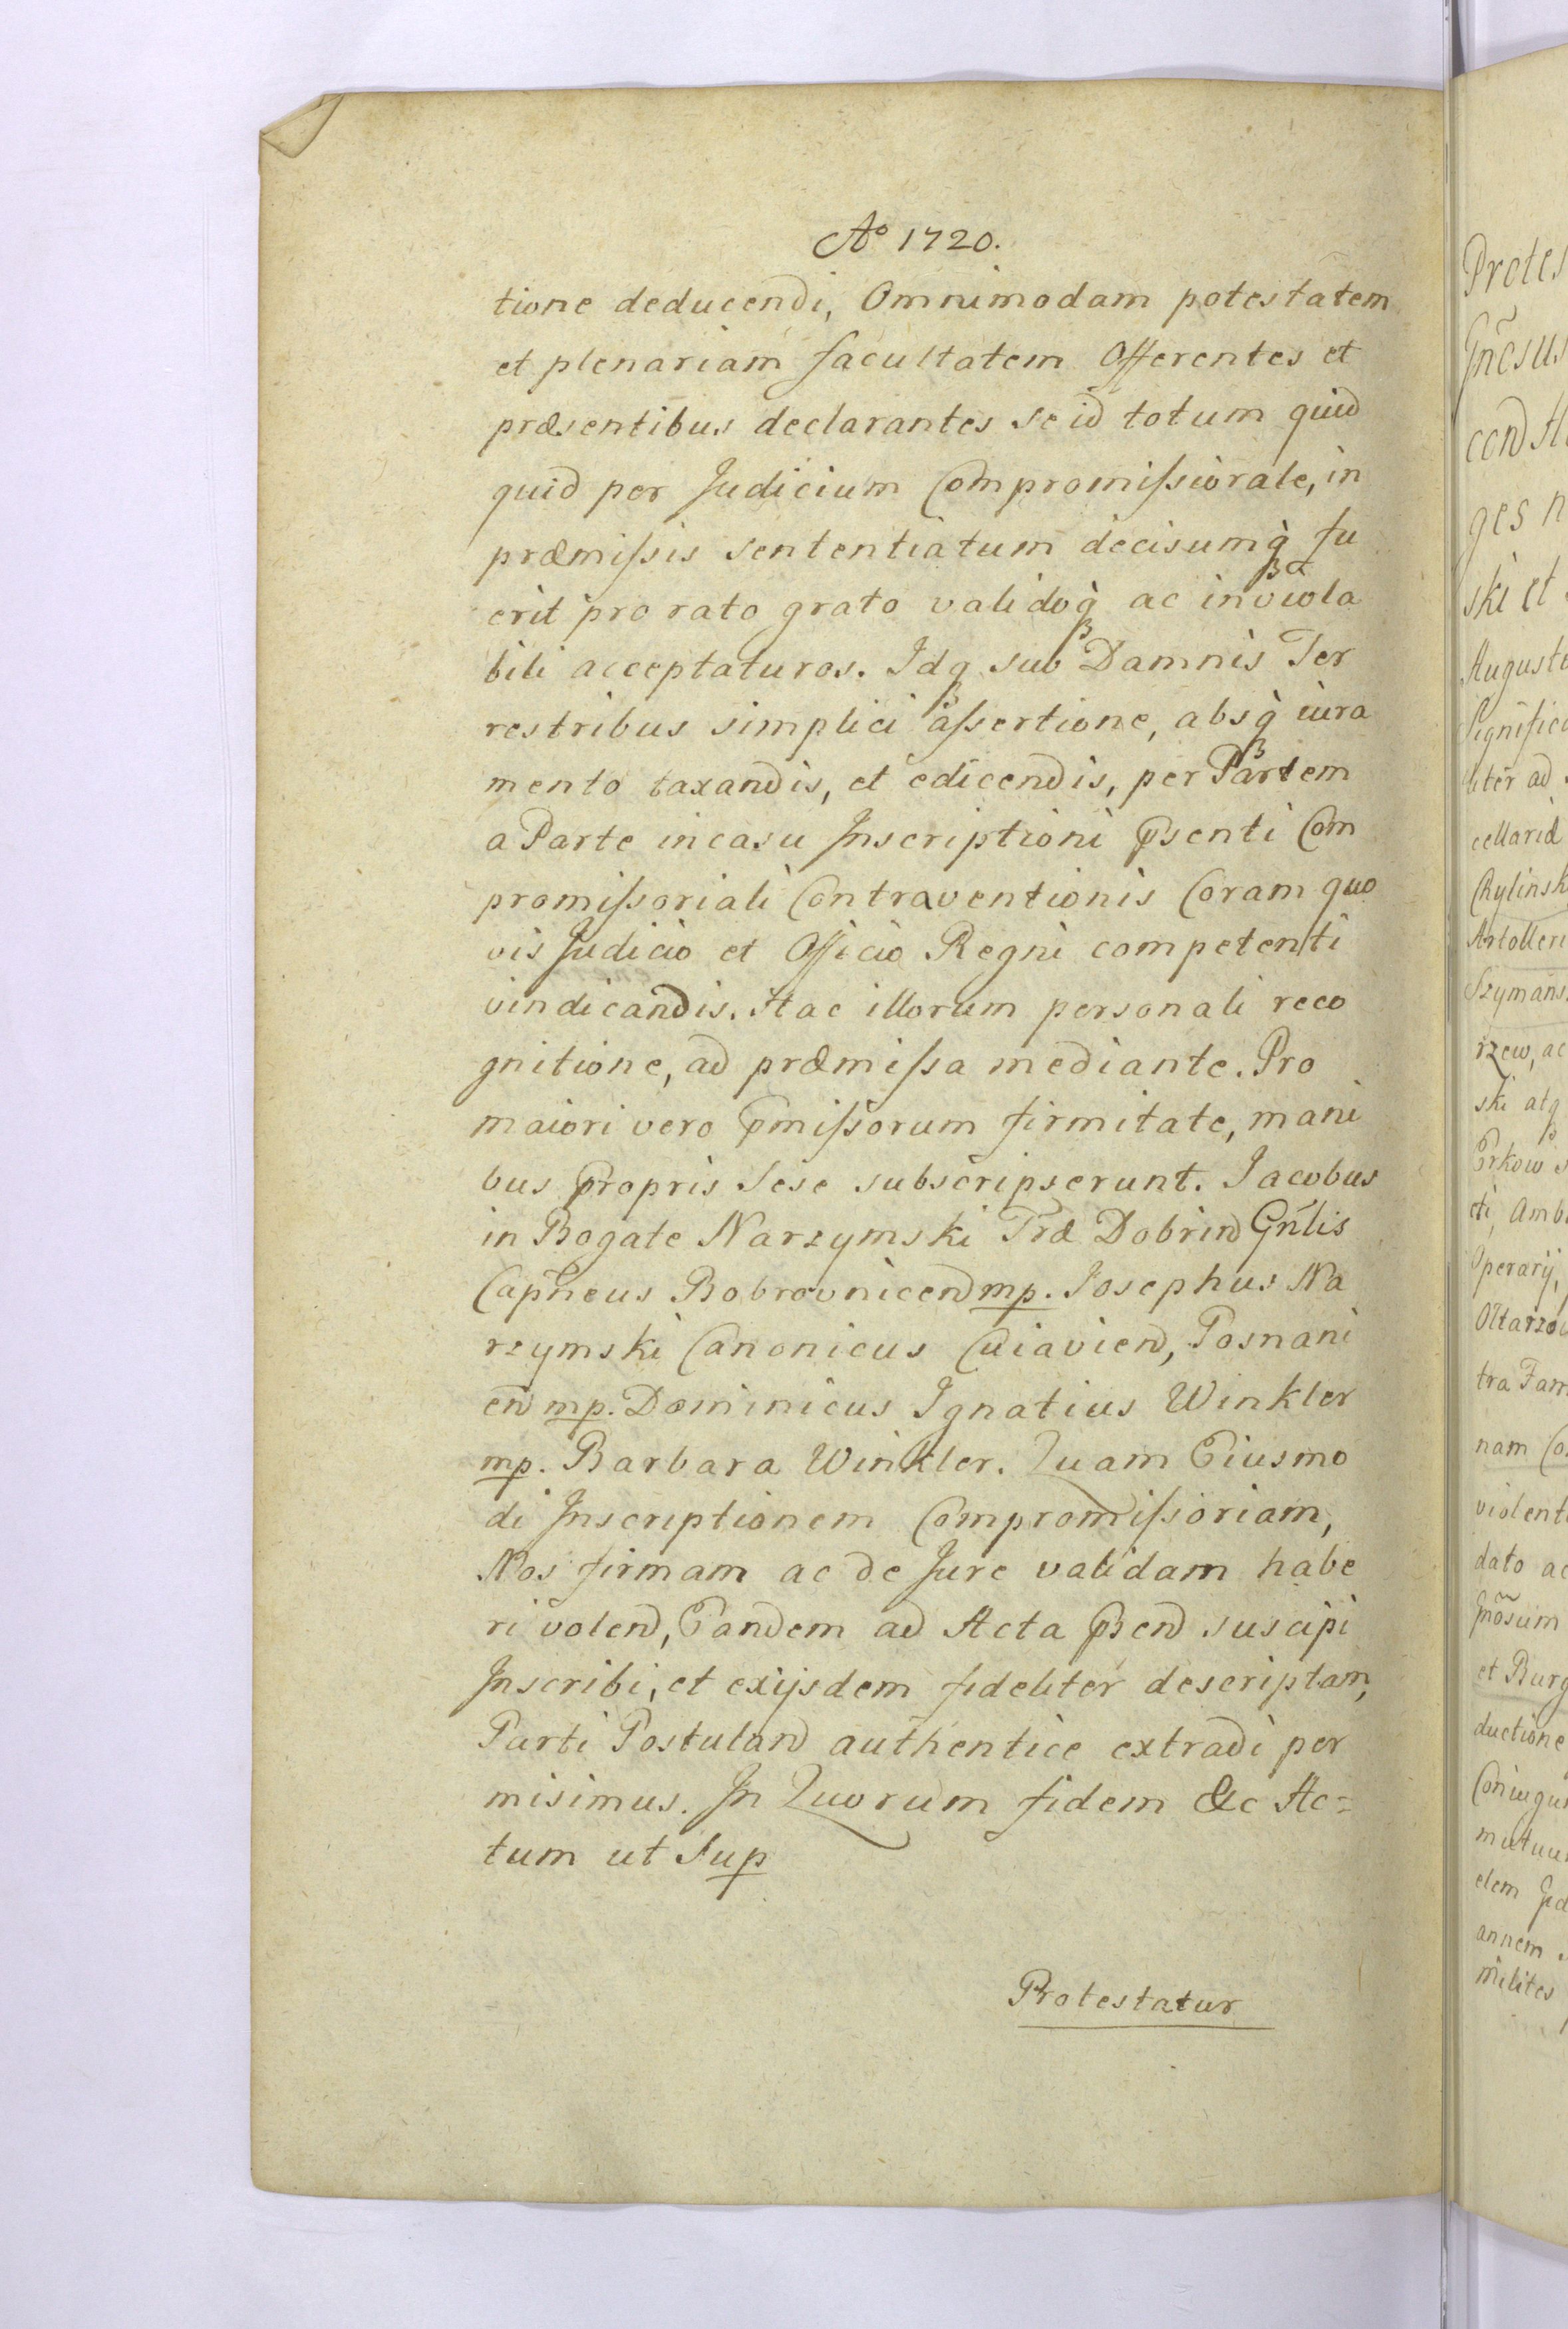 Aº 1720.
tione deducendi, Omnimodam potestatem
et plenariam facultatem Offerentes et
præsentibus declarantes se id totum quid
quid per Judicium Compromiſsiorale, in
præmiſsis sententiatum decisumq̀ fu
erit pro rato grato validoq̀ ac inviola
bili acceptaturos. Idq sub Damnis Ter
restribus simplici aſsertione, absq̀ iura
mento taxandis, et edicendis, per Partem
a Parte in casu Inscriptioni p̄senti Com
promiſsoriali Contraventionis Coram quo
vis Judicio et Officio Regni competenti
vindicandis. Hac illorum personali reco
gnitione, ad præmiſsa mediante. Pro
maiori vero p̄miſsorum firmitate, mani
bus propris sese subscripserunt. Jacobus
in Bogate Narzymski Træ Dobrin Gñlis
Capñeus Bobrovnicen mp. Josephus Na
rzymski Canonicus Cuiavien, Posnani
en mp. Dominicus Ignatius Winkler
mp. Barbara Winkler. Quam Eiusmo
di Inscriptionem Compromiſsoriam,
Nos firmam ac de Jure validam habe
ri volen, Eandem ad Acta p̄sen suscipi
Inscribi, et exijsdem fideliter descriptam,
Parti Postulan authentice extradi per
misimus. In Quorum fidem &c Ac=
tum ut Sup
Protestatur